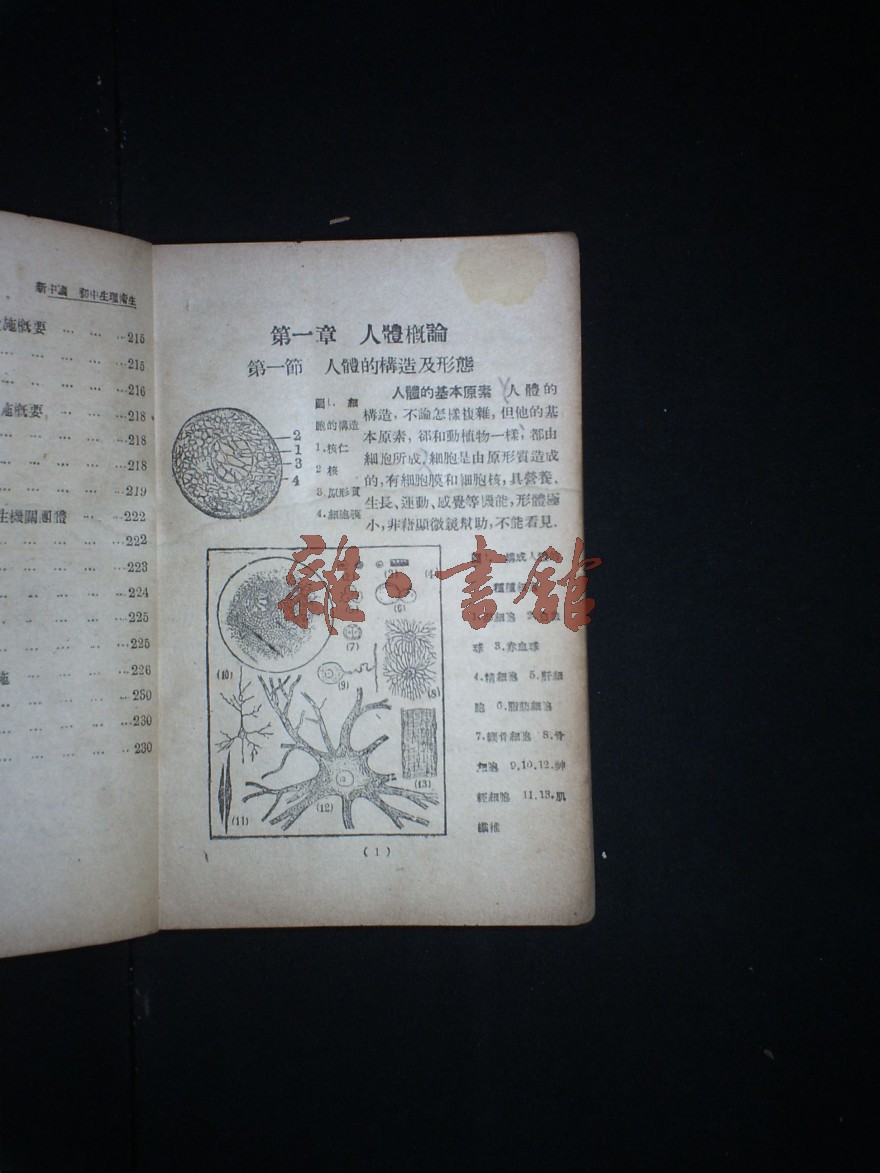 新中國 初中生理衛生
施概要 … … …215
… … … … …215
… … … … …216
施概要 … … …218
… … … … …218
… … … … …218
… … … … …219
生機關團體 … …222
… … … … …222
… … … … …223
… … … … …224
… … … … …225
… … … … …225
施 … … … …226
… … … … …230
… … … … …230
… … … … …230
第一章 人體概論
第一節 人體的構造及形態
圖1. 細
胞的構造
1.核仁
2 核
3.原形質
4.細胞膜
2
1
3
4
人體的基本原素 人體的
構造，不論怎樣複雜，但他的基
本原素，卻和動植物一樣，都由
細胞所成，細胞是由原形質造成
的，有細胞膜和細胞核，具營養、
生長、運動、感覺等機能，形體極
小，非藉顯微鏡幫助，不能看見．
雜·書館
(6)
(7)
(8)
(9)
(10)
(11)
(12)
(13)
構成人
種種
球 3.赤血球
4.精細胞 5.肝細
胞 6.脂肪細胞
7.軟骨細胞 8.骨
細胞 9.10.12.神
經細胞 11.13.肌
纖維
(1)